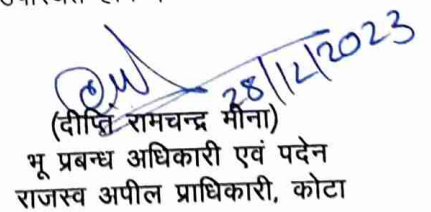 28/12/2023
(दीप्ति रामचन्द्र मीना)
भू प्रबन्ध अधिकारी एवं पदेन
राजस्व अपील प्राधिकारी, कोटा